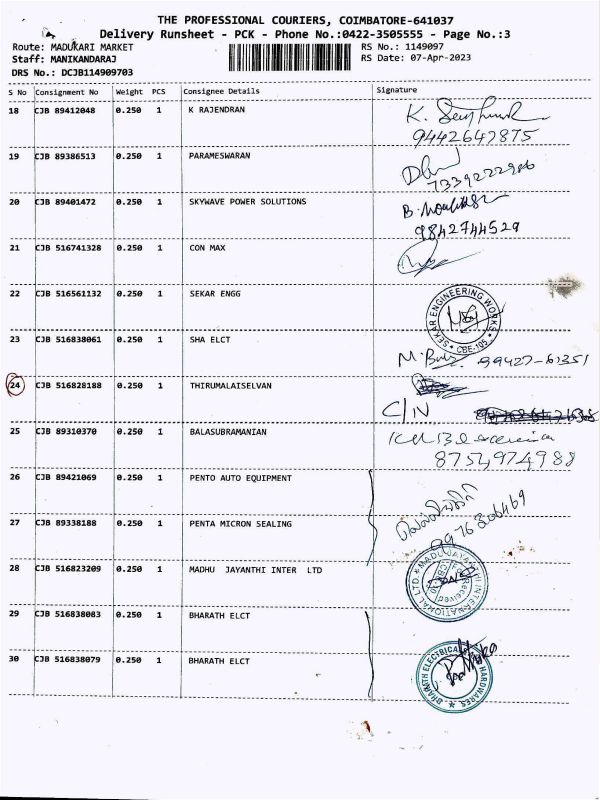 THE PROFESSIONAL COURIERS, COIMBATORE-641037
Delivery Runsheet - PCK - Phone No.:0422-3505555 - Page No.:3
Route: MADUKARI MARKET RS No.: 1149097
Staff: MANIKANDARAJ RS Date: 07-Apr-2023
DRS No.: DCJB114909703
S No Consignment No Weight PCS Consignee Details Signature
18 CJB 89412048 0.250 1 K RAJENDRAN K.
9442647875
19 CJB 89386513 0.250 1 PARAMESWARAN
7339222986
20 CJB 89401472 0.250 1 SKYWAVE POWER SOLUTIONS B.
9842744529
21 CJB 516741328 0.250 1 CON MAX
22 CJB 516561132 0.250 1 SEKAR ENGG SEKAR ENGINEERING WORKS * CBE-105 *
23 CJB 516838061 0.250 1 SHA ELCT
M. 99427-61351
24 CJB 516828188 0.250 1 THIRUMALAISELVAN
C/N
25 CJB 89310370 0.250 1 BALASUBRAMANIAN
8754974988
26 CJB 89421069 0.250 1 PENTO AUTO EQUIPMENT
27 CJB 89338188 0.250 1 PENTA MICRON SEALING
28 CJB 516823209 0.250 1 MADHU JAYANTHI INTER LTD MADHU JAYANTHI INTERNATIONAL LTD. Received
29 CJB 516838083 0.250 1 BHARATH ELCT
30 CJB 516838079 0.250 1 BHARATH ELCT BHARATH ELECTRICALS HARDWARES